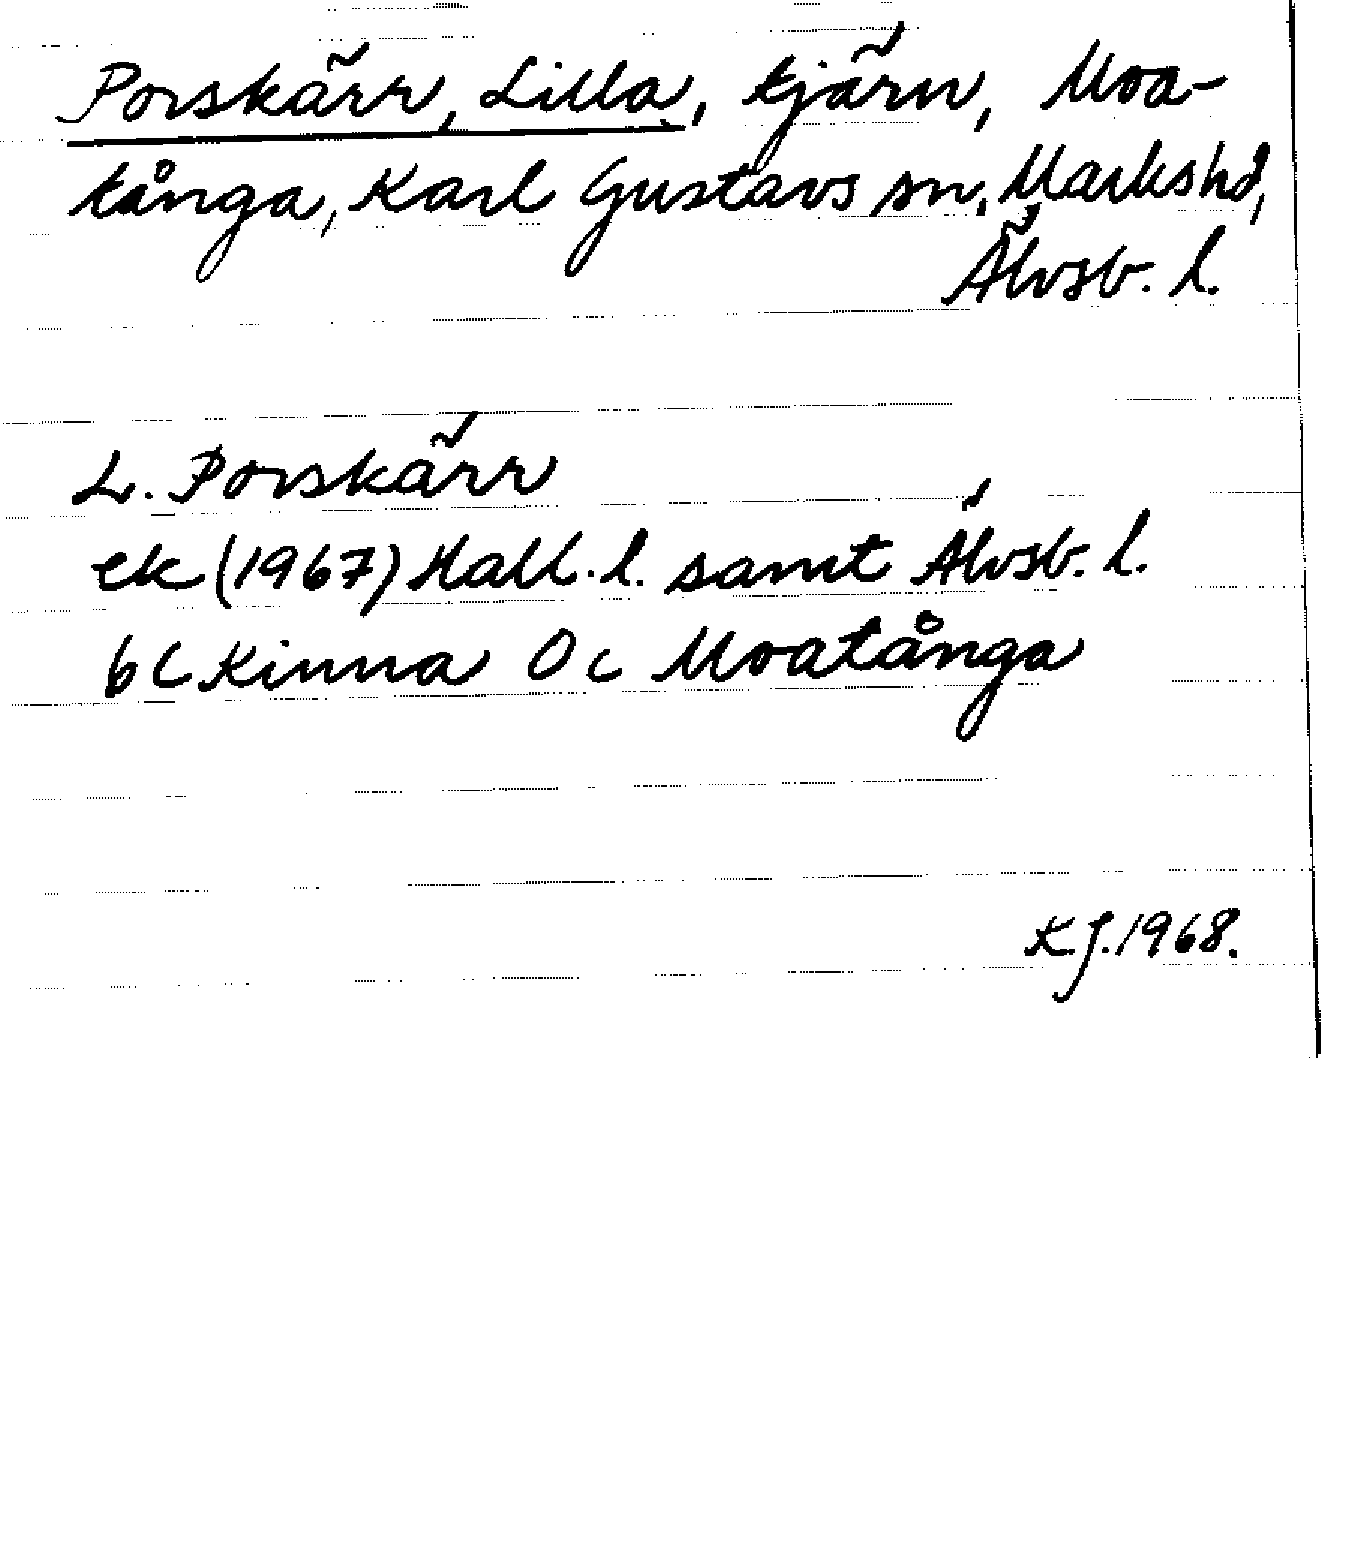 Porskärr, Lilla, tjärn, Moa-
tånga, Karl Gustavs sn, Markshd,
Älvsb. l.
L. Porskärr
ek (1967) Hall. l. samt Älvsb. l.
6 C Kinna O c Moatånga
K.J. 1968.